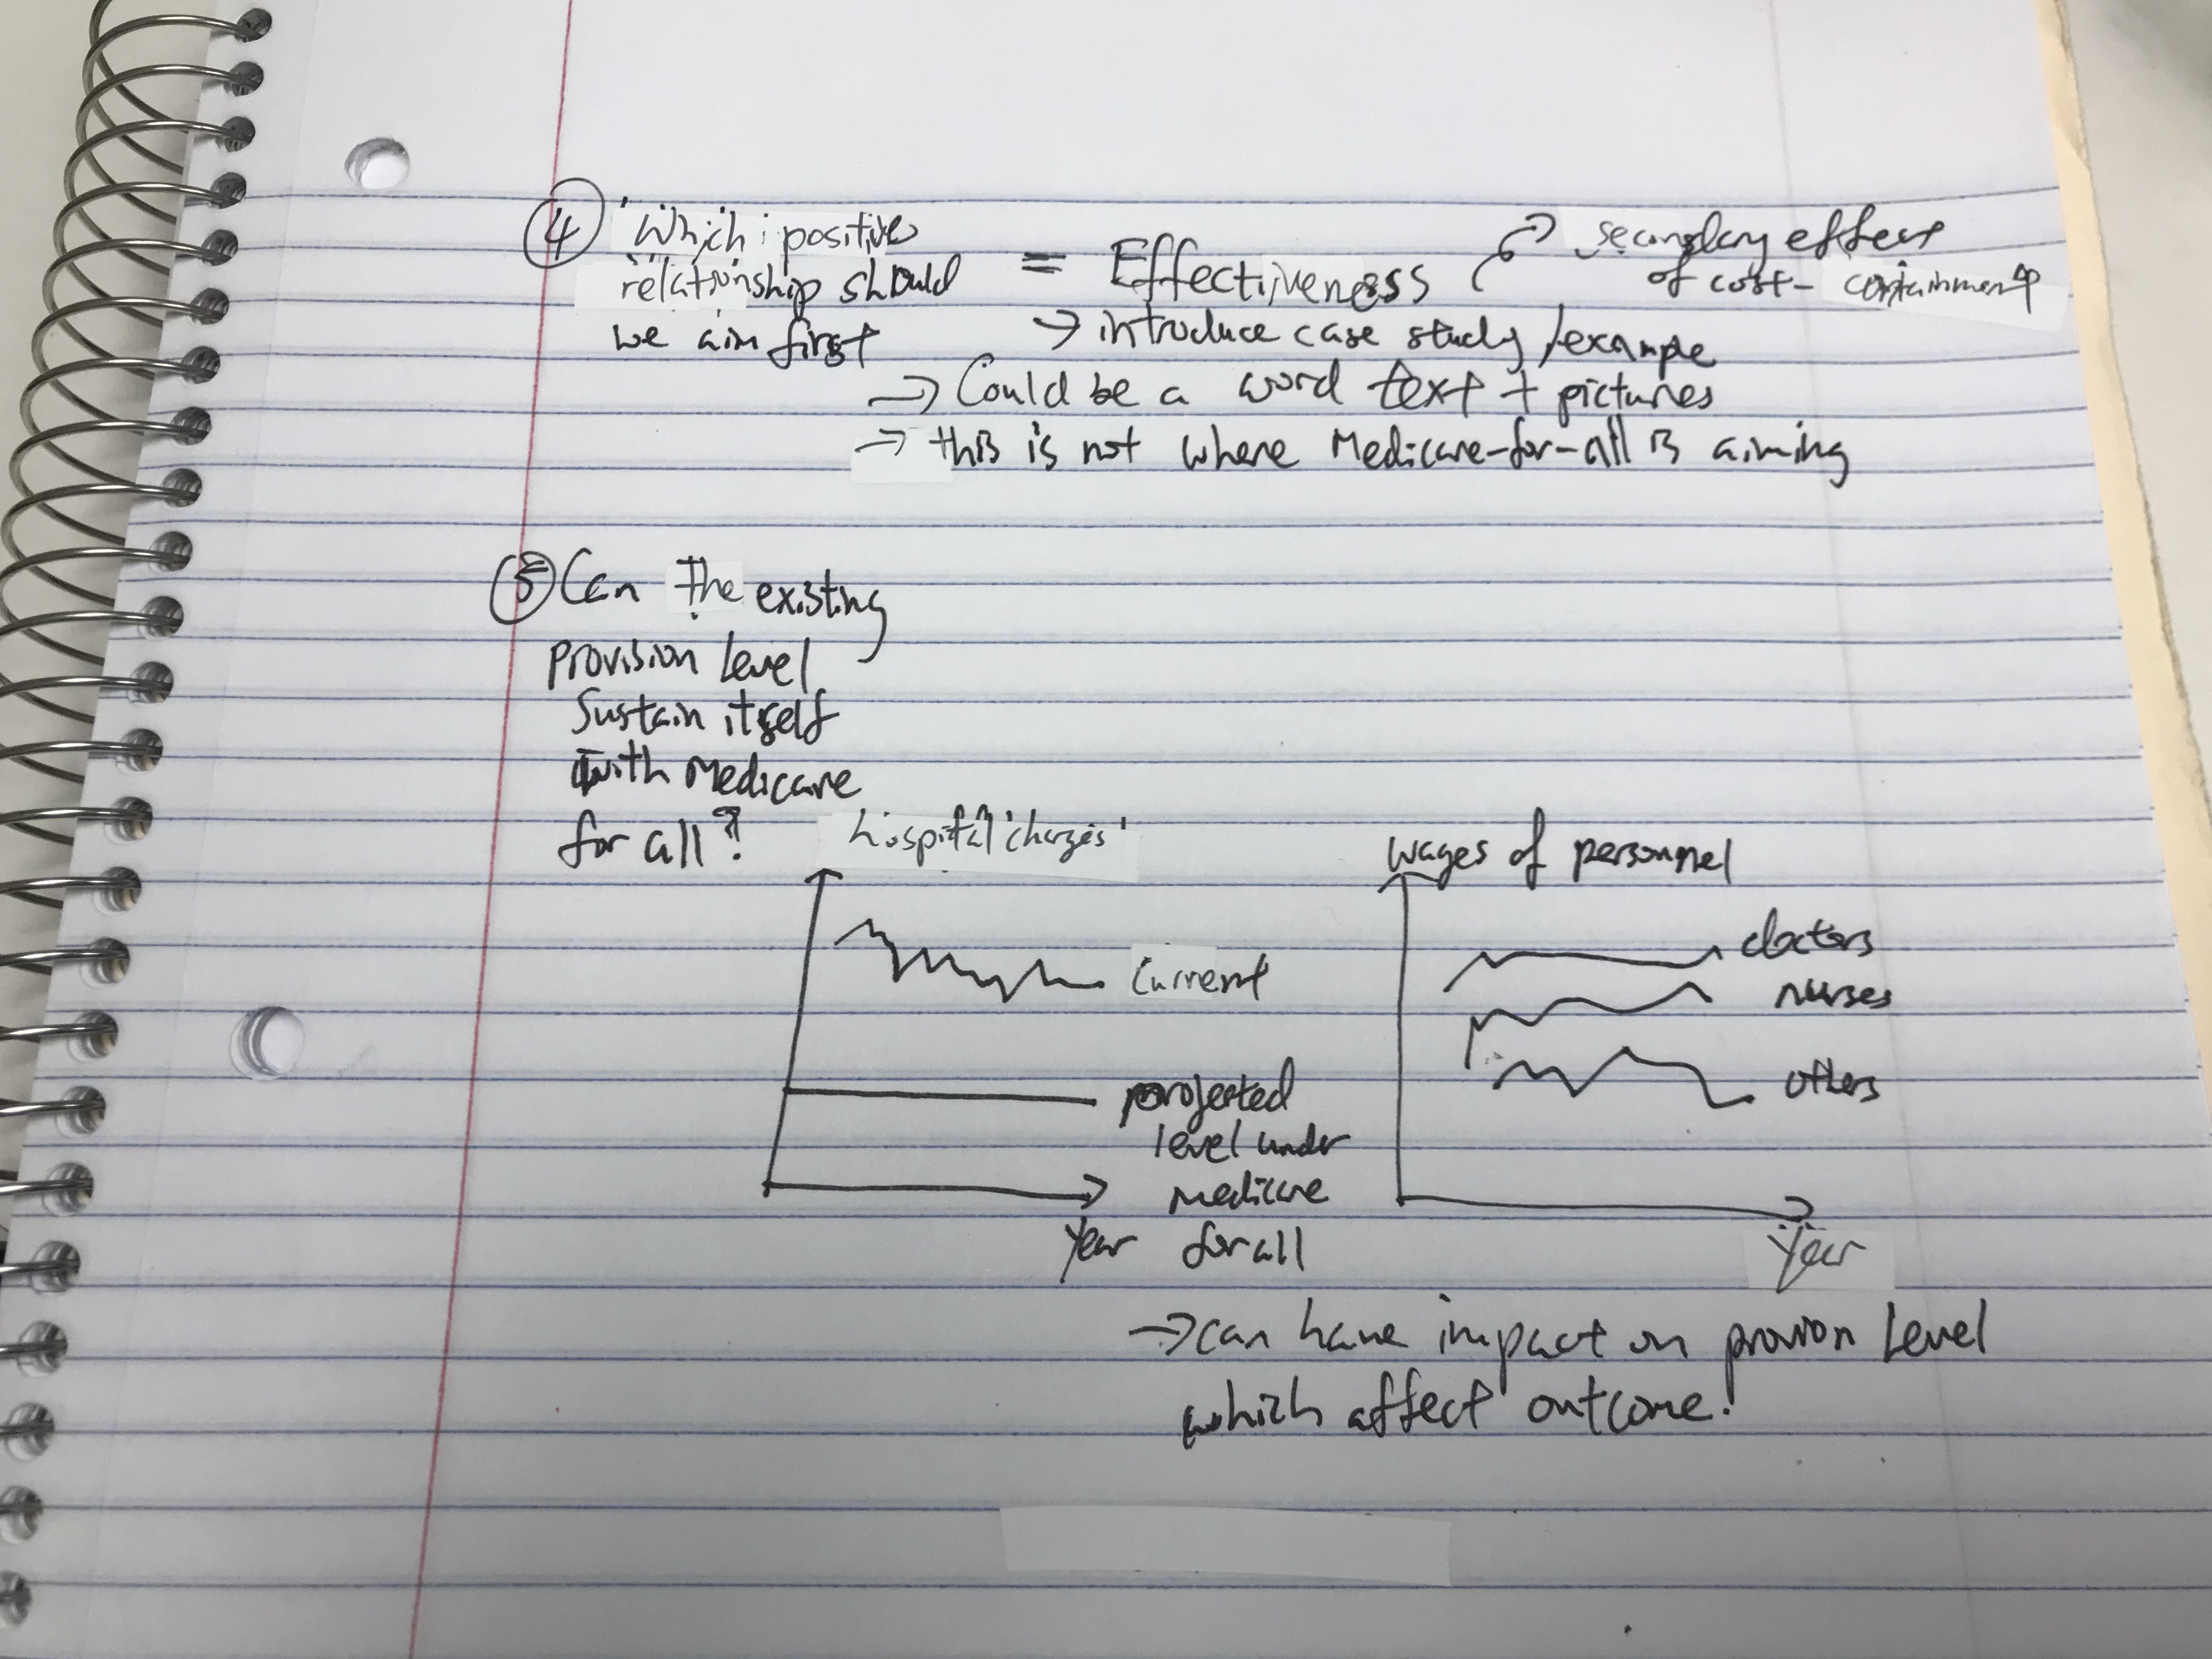 ④ Which positive = Effectiveness → secondary effect
relationship should of cost-containment
we aim first → introduce case study/example
→ Could be a word text + pictures
→ this is not where Medicare-for-all is aiming
⑤ Can the existing
provision level
Sustain itself
with Medicare
for all?
hospital 'charges'
Current
projected
level under
medicare
for all
Year
wages of personnel
doctors
nurses
others
Year
→ can have impact on provion level
which affect outcome!